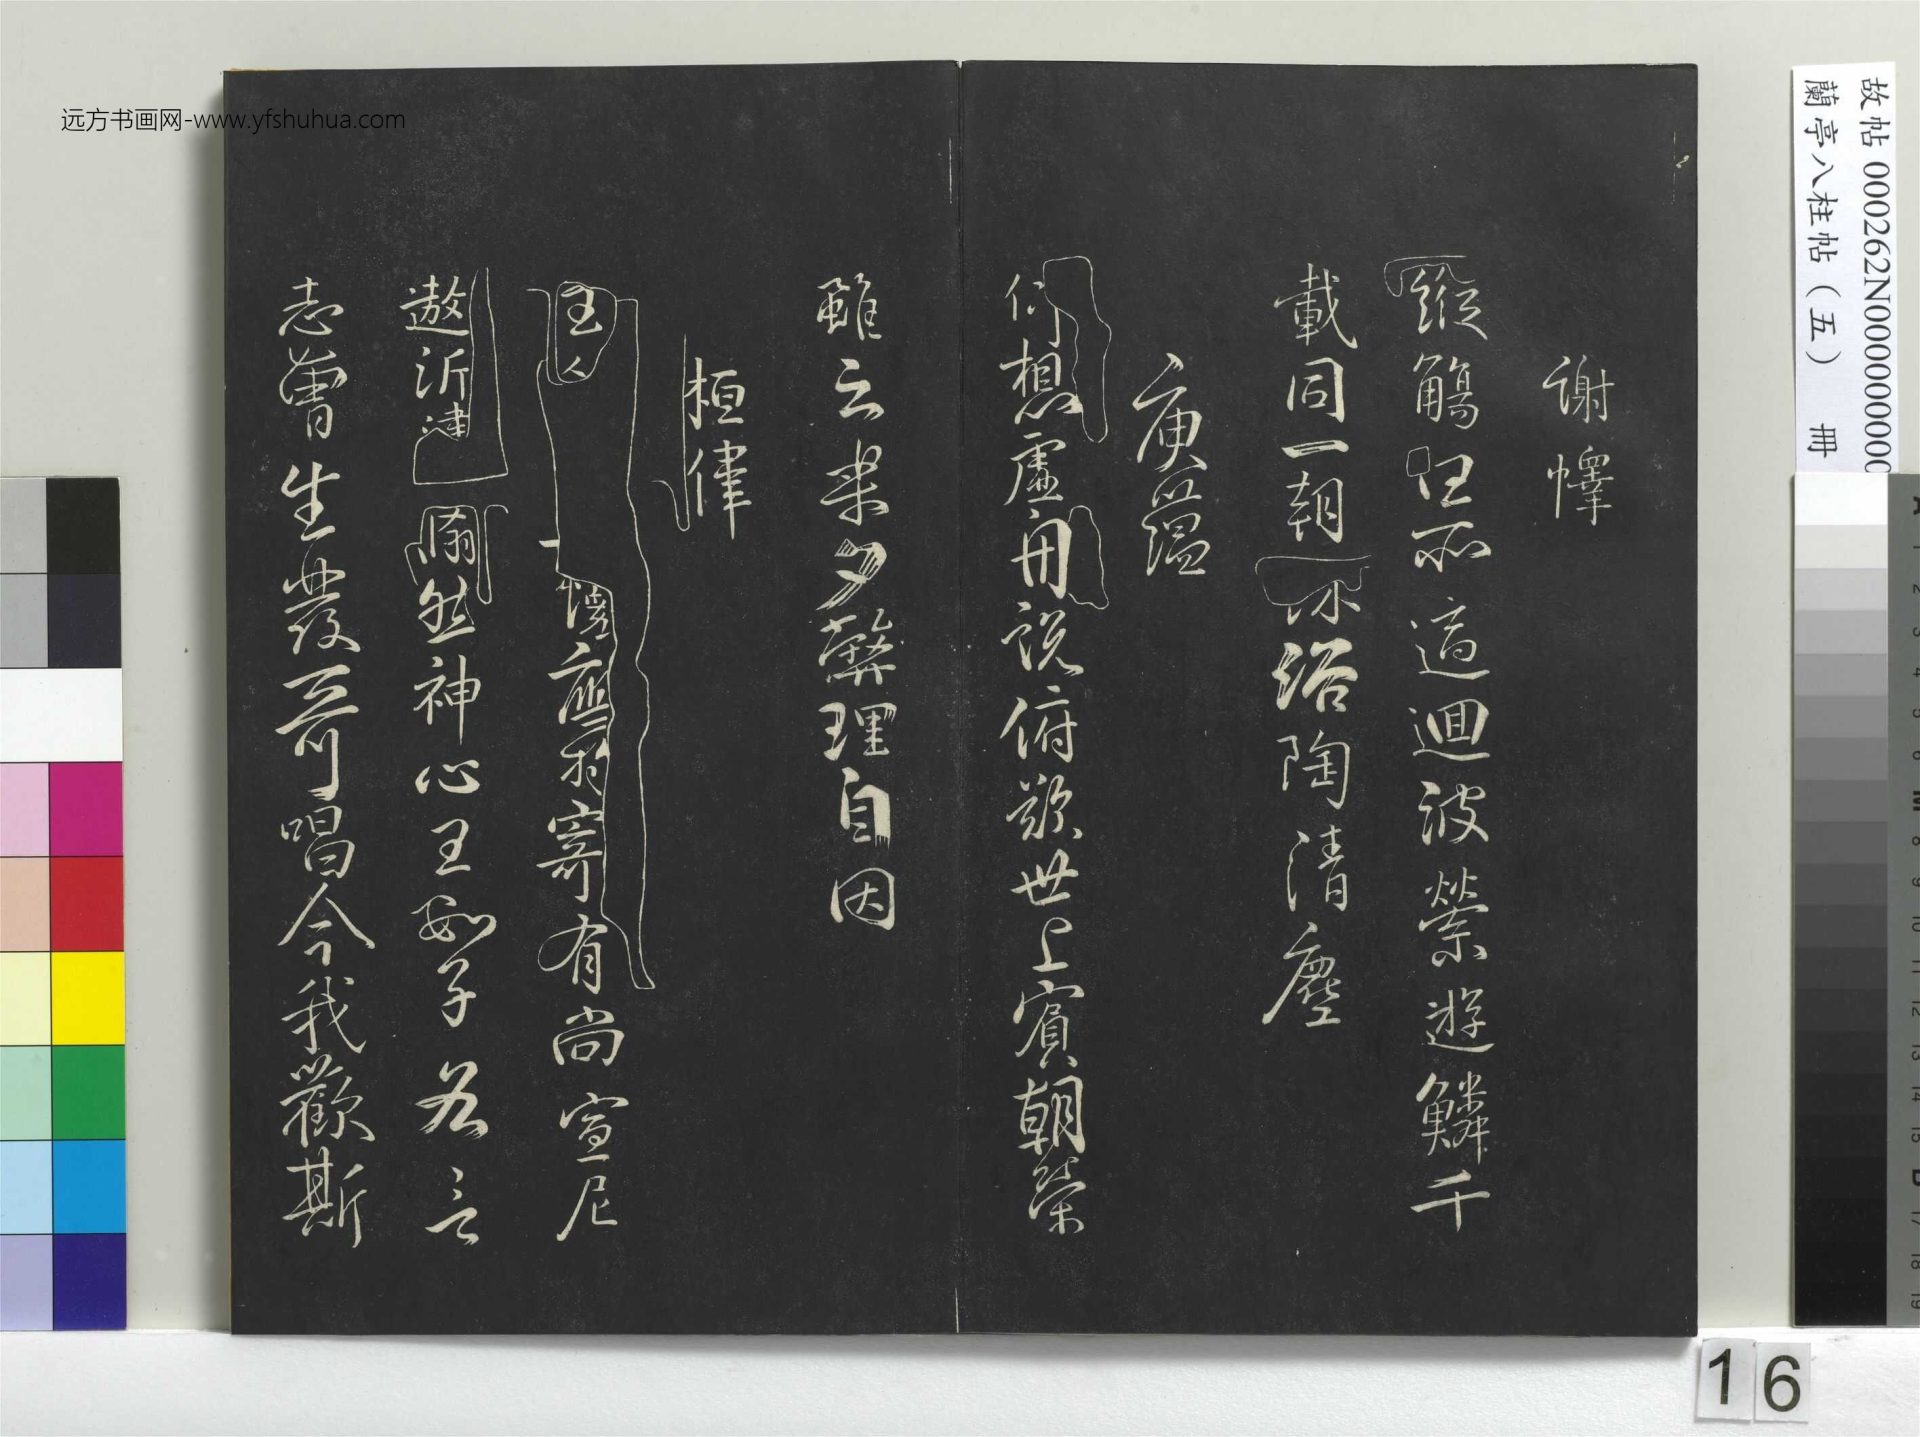 故帖000262N000000000
蘭亭八柱帖（五） 冊
远方书画网-www.yfshuhua.com
謝懌
縱觴任所適迴波縈遊鱗千
載同一朝沐浴陶清塵
庾蘊
仰想虛舟說俯歎世上賓朝榮
雖云樂夕斃理自因
桓偉
主人 懷應物寄有尚宣尼
遨沂津 翛然神心王數子各言
志曾生發奇唱今我歡斯
16